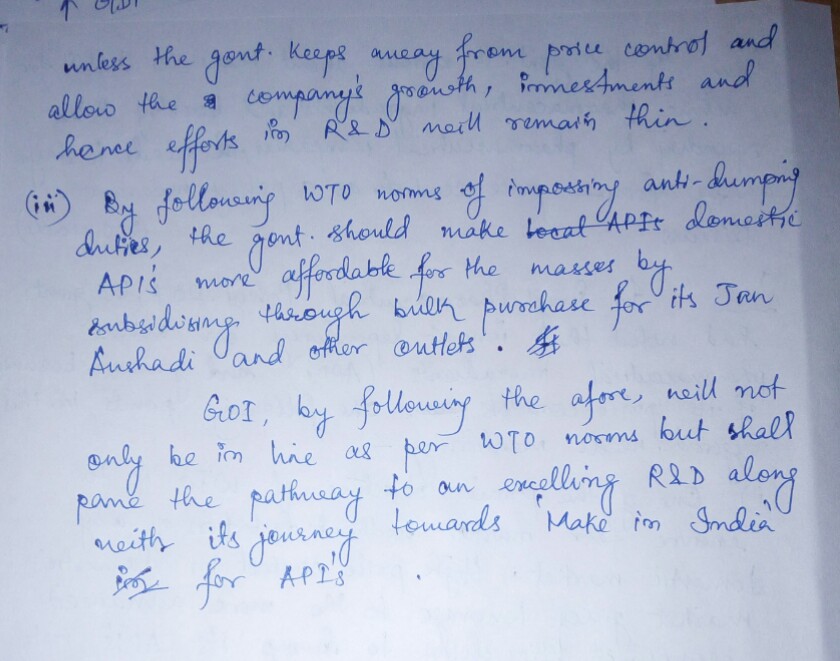 unless the govt. keeps away from price control and
allow the company's growth, investments and
hence efforts in R&D will remain thin.
(iii) By following WTO norms of impossing anti-dumping
duties, the govt. should make local APIs domestic
API's more affordable for the masses by
subsidising through bulk purchase for its Jan
Aushadi and other outlets.
GOI, by following the afore, will not
only be in line as per WTO norms but shall
pave the pathway to an excelling R&D along
with its journey towards "Make in India"
for API's.